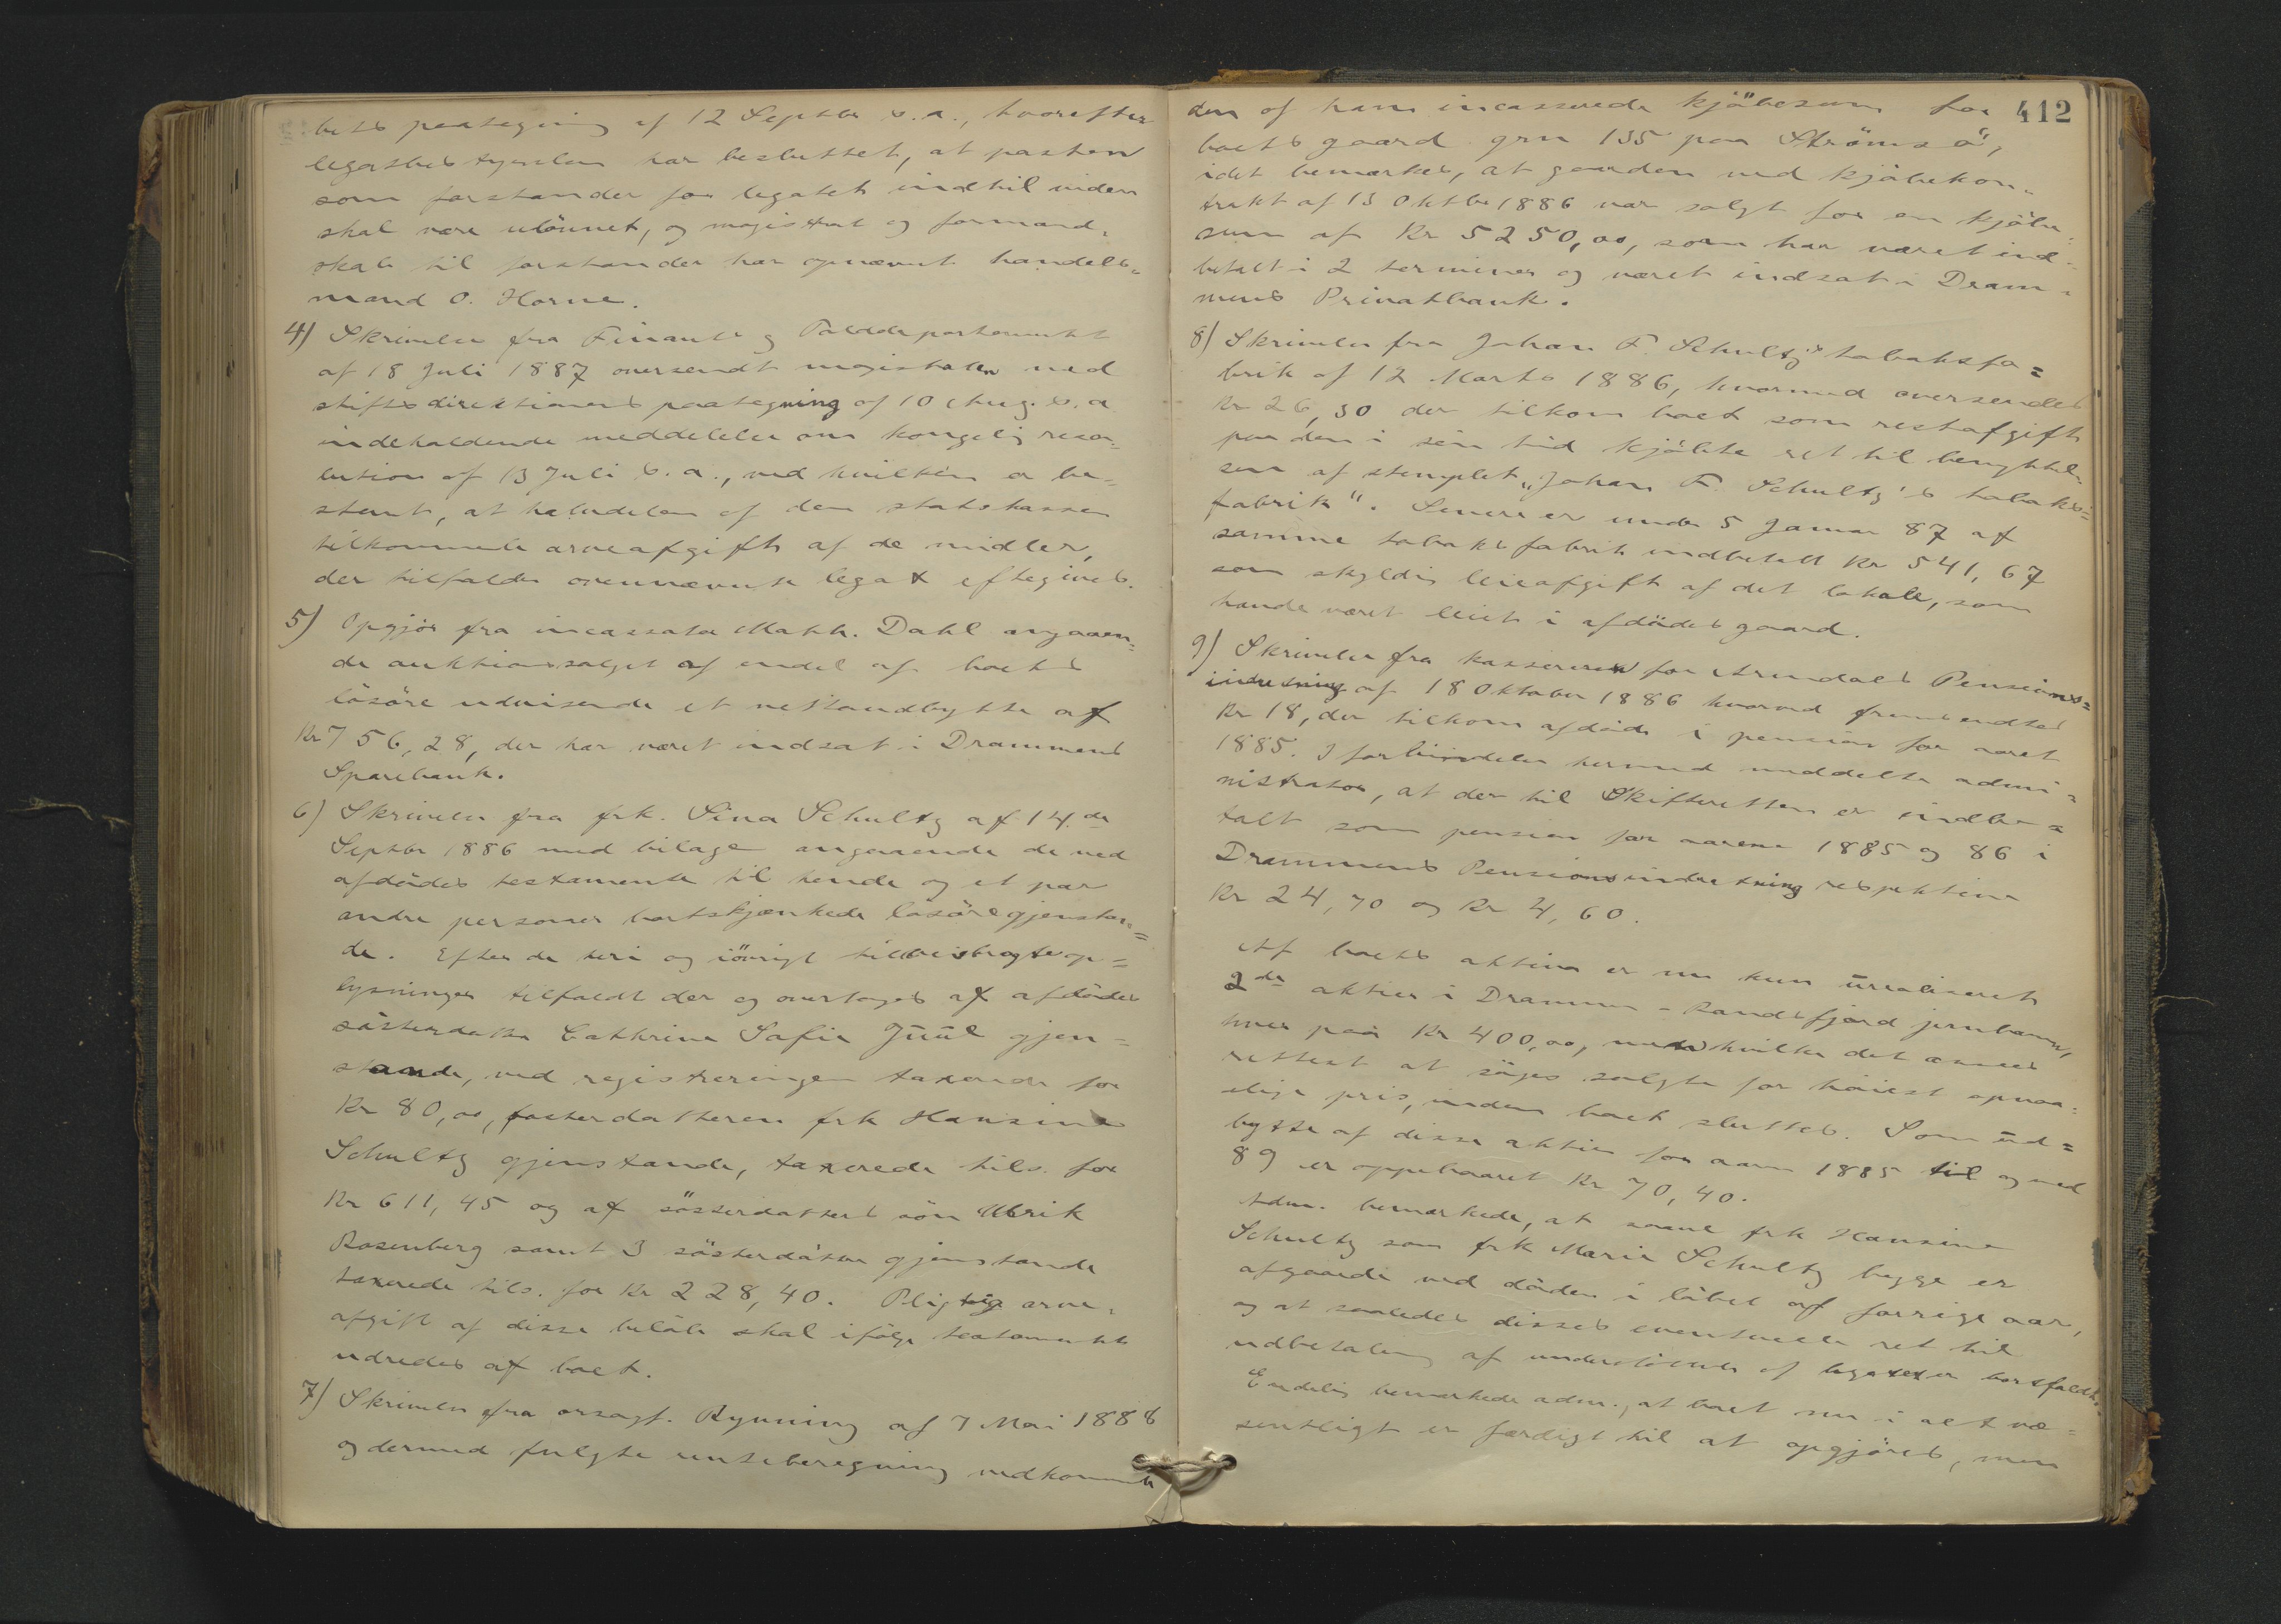 bets paategning af 12 Septbr s. a., hvorefter
legatbestyrelsen har besluttet, at posten
som forstander for legatet indtil videre
skal være ulönnet, og magistrat og formand-
skab til forstander har opnævnt handels-
mand O. Horne.
4) Skrivelse fra Finants og Tolddepartementet
af 18 Juli 1887 oversendt magistraten med
stiftsdirektionens paategning af 10 Aug. s. a
indeholdende meddelelse om kongelig reso-
lution af 13 Juli s. a., ved hvilken er be-
stemt, at halvdelen af den statskassen
tilkommende arveafgift af de midler,
der tilfalder ovennævnte legat eftergives.
5) Opgjör fra incassator Math. Dahl angaaen=
de auktionssalget af endel af boets
lösöre udvisende et nettoudbytte af
Kr 756,28, der har været indsat i Drammens
Sparebank.
6) Skrivelse fra frk. Sina Schultz af 14.de
Septbr 1886 med bilage angaaende de ved
afdödes testamente til hende og et par
andre personer bortskjænkede lösöregjenstan=
de. Efter de heri og iövrigt tilveiebragte op=
lysninger tilfaldt der og overtoges af afdödes
sösterdatter Cathrine Sofie Juul gjen=
stande, ved registreringen taxerede for
Kr 80,00, fosterdatteren frk Hansine
Schultz gjenstande, taxerede tils. for
Kr 611,45 og af sösterdatters sön Ulrik
Rosenberg samt 3 sösterdötre gjenstande
taxerede tils. for Kr 228,40. Pligtig arve-
afgift af disse belöb skal ifölge testamentet
udredes af boet.
7) Skrivelse fra orsagf. Rynning af 7 Mai 1888
og dermed fulgte renteberegning vedkommen
den af ham incasserede kjöbesum for
boets gaard grn 155 paa Strömsö,
idet bemærkes, at gaarden ved kjöbekon-
trakt af 15 Oktbr 1886 var solgt for en kjöbe-
sum af Kr 5250,00, som har været ind-
betalt i 2 terminer og været indsat i Dram-
mens Privatbank.
8) Skrivelse fra Johan F. Schultz's tobaksfa=
brik af 12 Marts 1886, hvormed oversendes
Kr 26,30 der tilkom boet som restafgift
paa den i sin tid kjöbte ret til benyttel-
sen af stemplet "Johan F. Schultz's tobaks=
fabrik". Senere er under 5 Januar 87 af
samme tobaksfabrik indbetalt Kr 541,67
som skyldig leieafgift af det lokale, som
havde været leiet i afdödes gaard.
9) Skrivelse fra kassereren for Arendals Pensions=
indretning af 18 Oktober 1886 hvorved fremsendtes
Kr 18, der tilkom afdöde i pension for aaret
1885. I forbindelse hermed meddelte admi=
nistrator, at der til Skifteretten er indbe=
talt som pension for aarene 1885 og 86 i
Drammens Pensionsindretning respektive
Kr 24,70 og Kr 4,60.
Af boets aktiva er nu kun urealiseret
2de aktier i Drammen - Randsfjord jernbane,
hver paa Kr 400,00, med hvilke det ansees
rettest at söges solgte for höiest opnaa-
elige pris, inden boet sluttes. Som ud=
bytte af disse aktier for aaren 1885 til og med
89 er oppebaaret Kr 70,40.
Adm. bemærkede, at saavel frk Hansine
Schultz som frk Marie Schultz begge er
afgaaede ved döden i löbet af forrige aar,
og at saaledes disses eventuelle ret til
udbetaling af understöttelse af legatet er bortfaldt.
Endelig bemærkede adm., at boet nu i alt væ=
sentligt er færdigt til at opgjöres, men
412